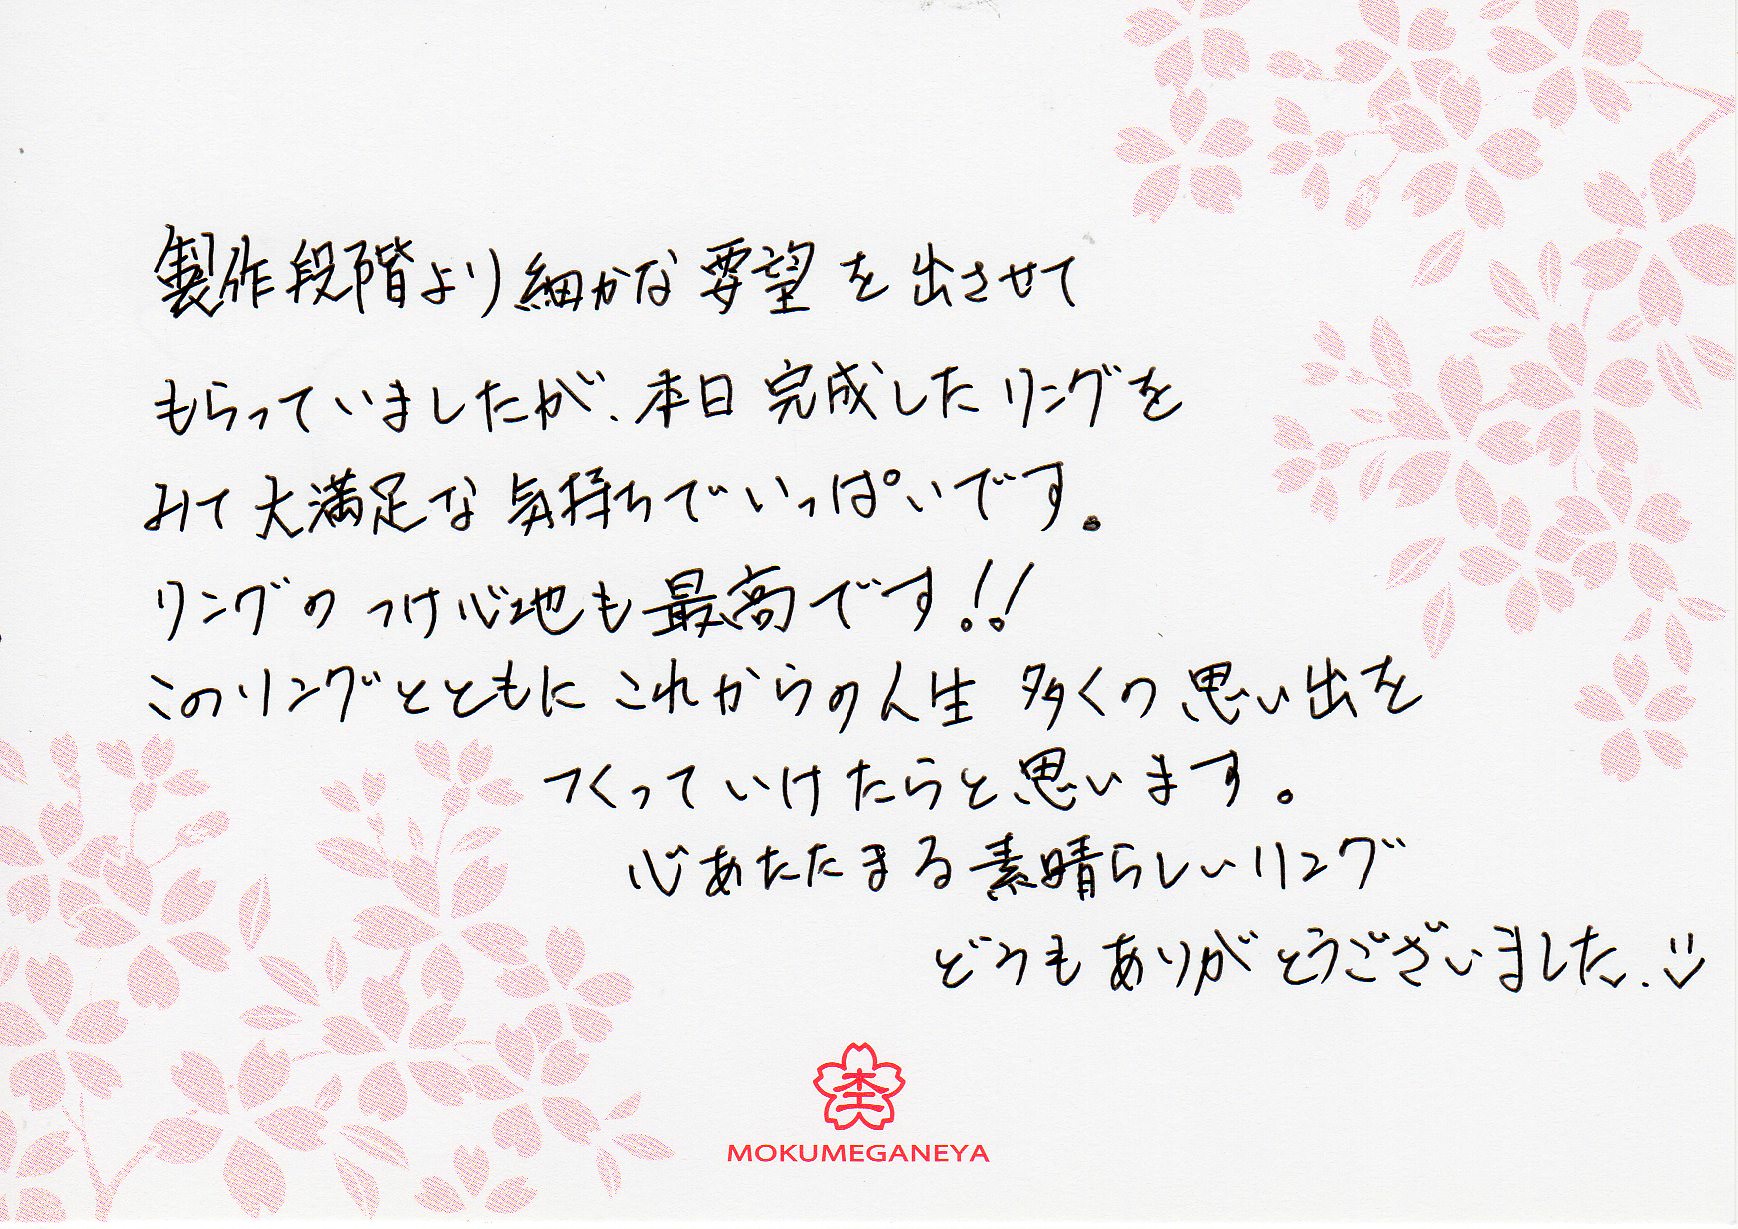 製作段階より細かな要望を出させて
もらっていましたが、本日完成したリングを
みて大満足な気持ちでいっぱいです。
リングのつけ心地も最高です!!
このリングとともにこれからの人生 多くの思い出を
つくっていけたらと思います。
心あたたまる素晴らしいリング
どうもありがとうございました.
MOKUMEGANEYA